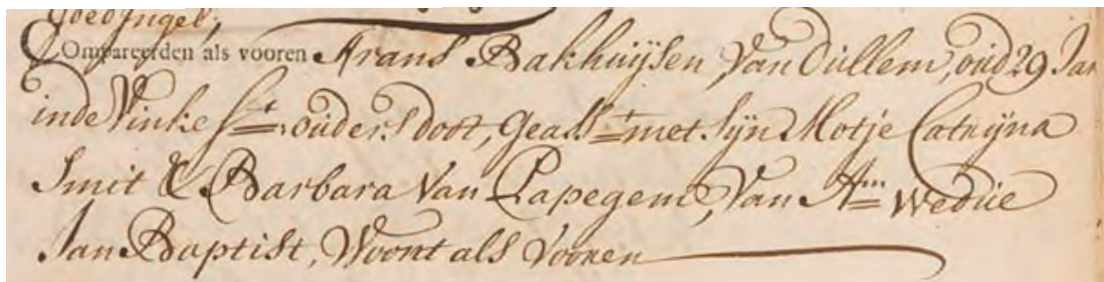 Goedsingel;
Compareerden als vooren Frans Bakhuijsen, van Dullem, oud 29 Jar
inde Vinke St., ouders doot, geasst met sijn Motje Catrijna
Smit & Barbara van Papegem, van Am wedúe
Jan Baptist, Woont als Vooren